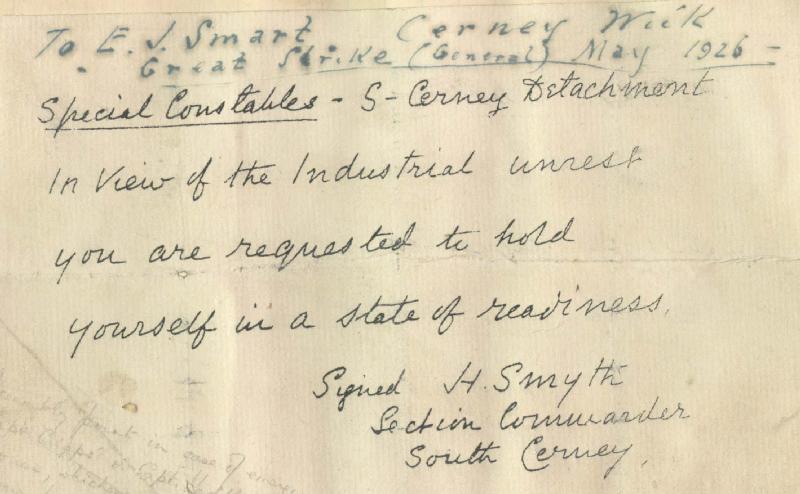 To E. J. Smart Cerney Wick
Great Strike (General) May 1926 -
Special Constables - S- Cerney Detachment
In View of the Industrial unrest
you are requested to hold
yourself in a state of readiness.
Signed H. Smyth
Section Commander
South Cerney.
in case of
Capt.